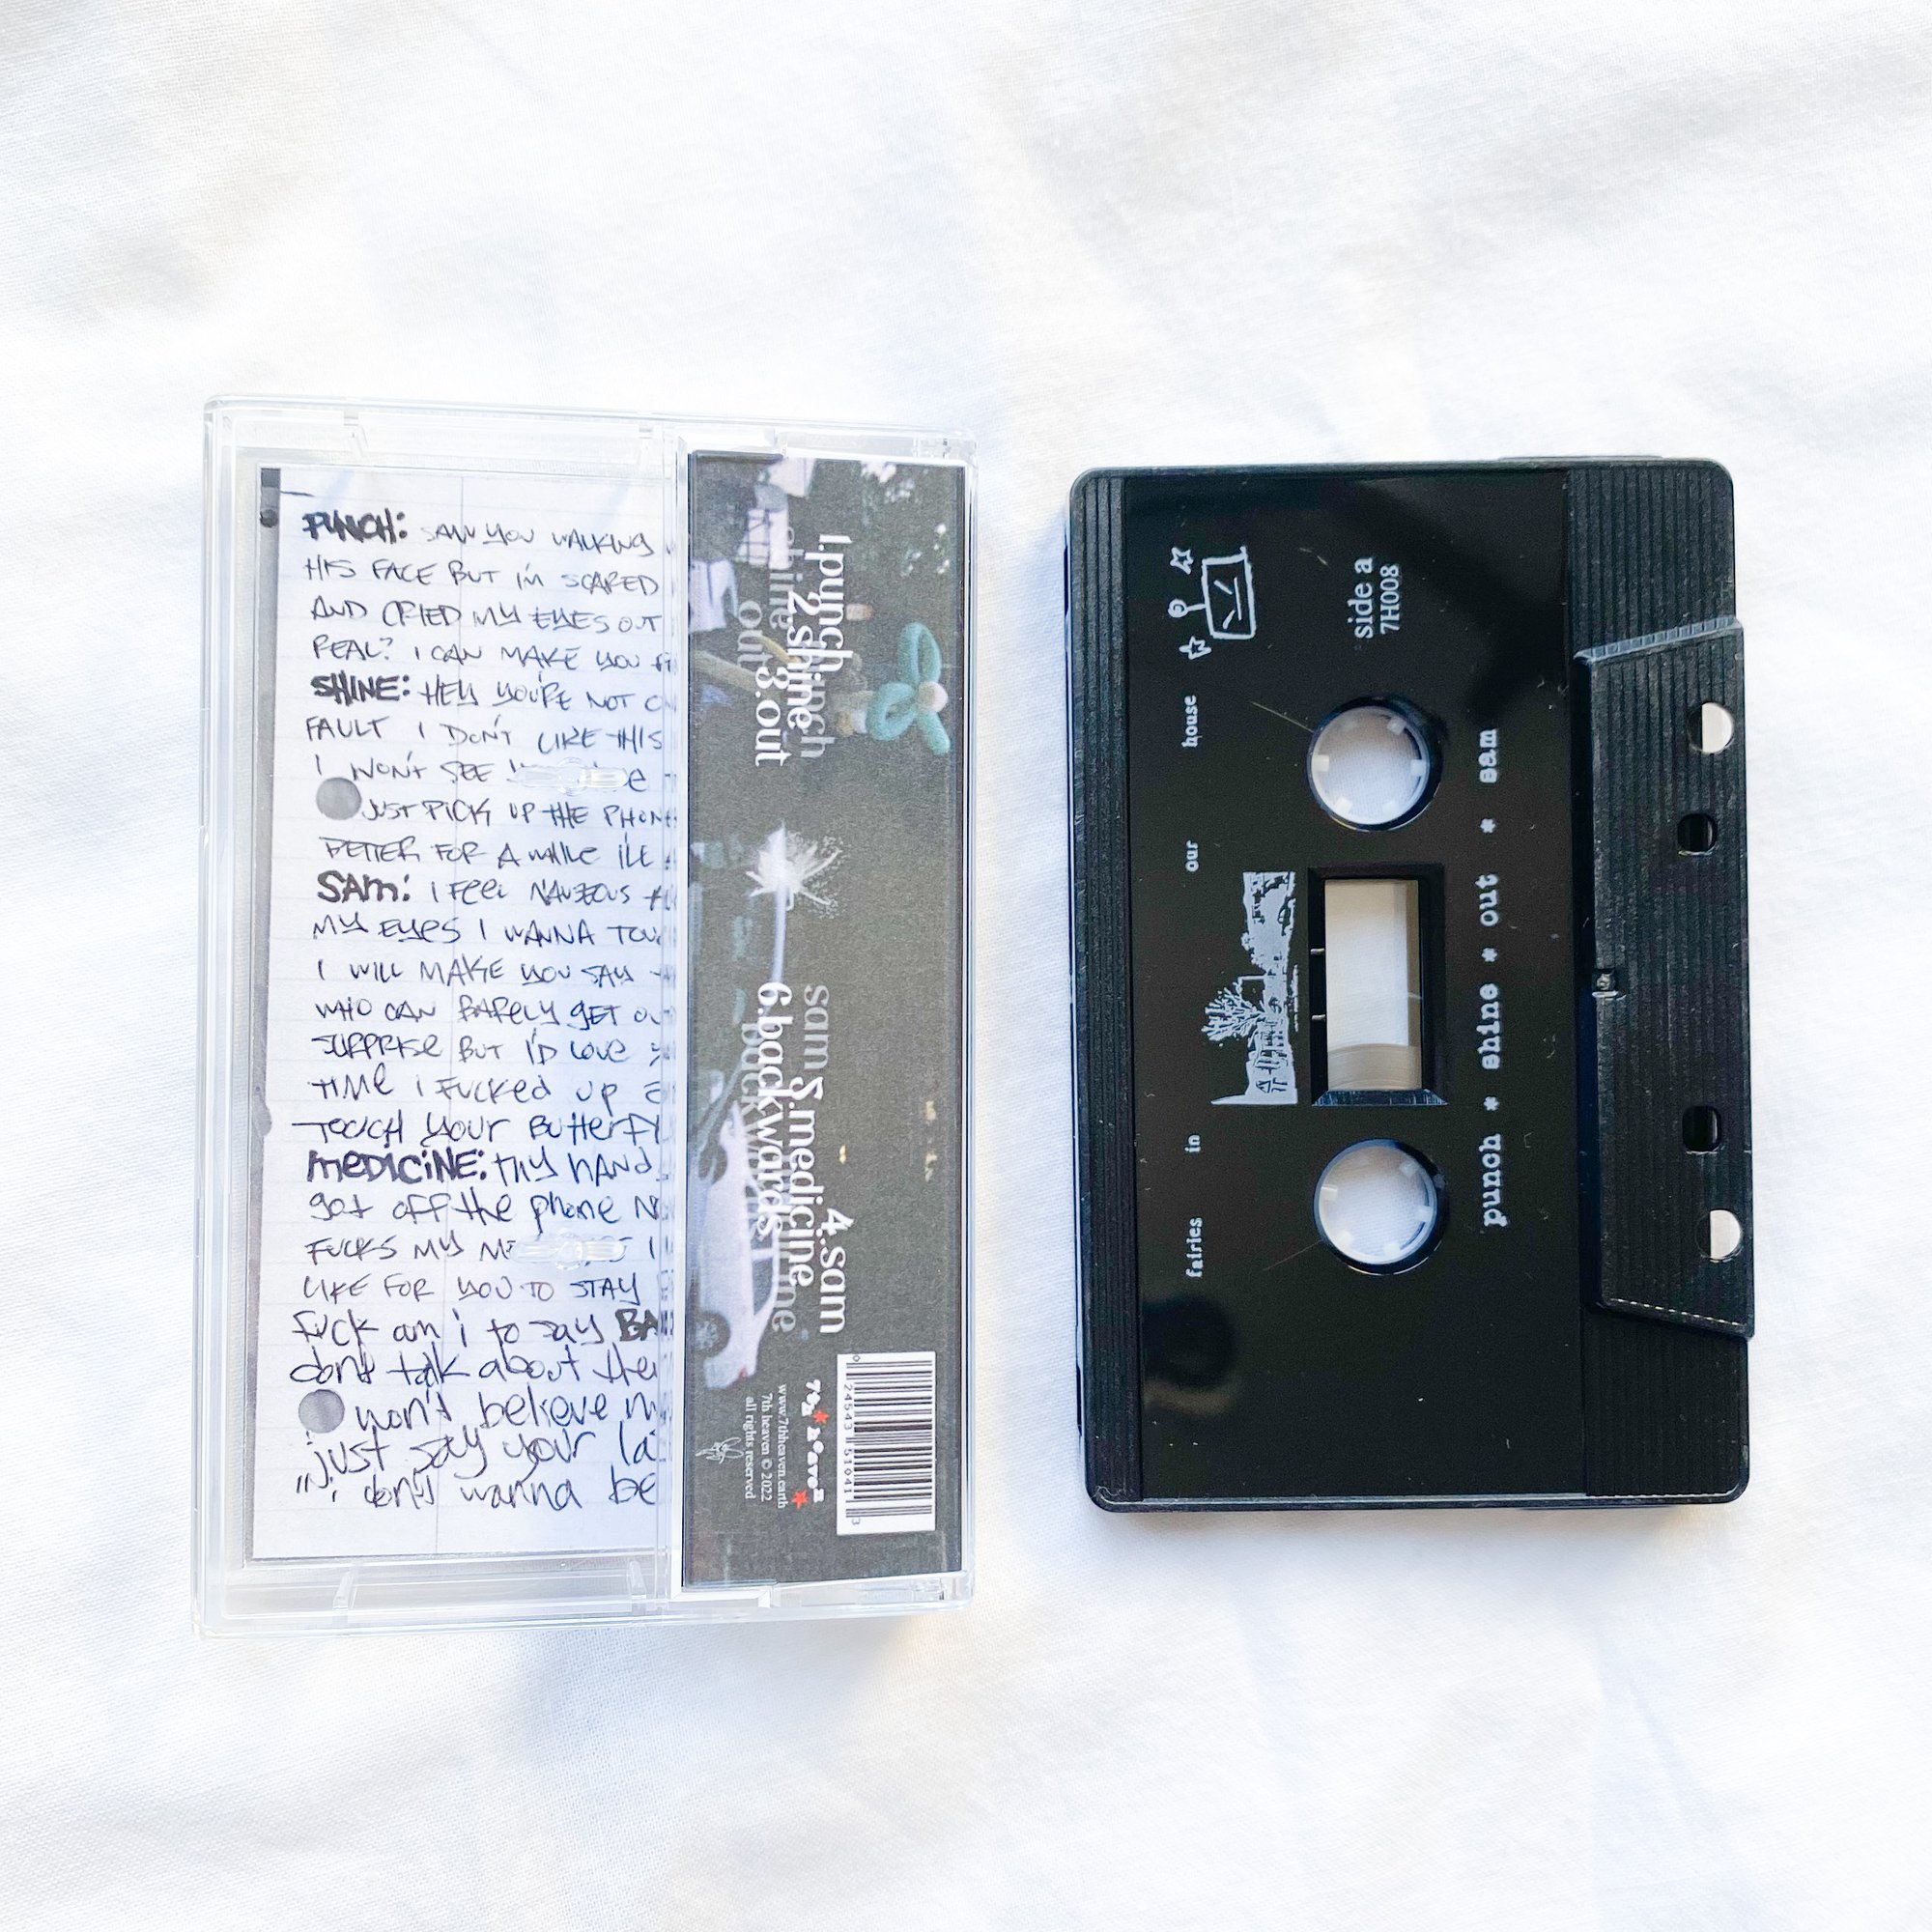 PUNCH: SAW YOU WALKING
HIS FACE BUT I'M SCARED
AND CRIED MY EYES OUT
REAL? I CAN MAKE YOU
SHINE: HEY YOU'RE NOT
FAULT I DON'T LIKE THIS
I WON'T SEE
JUST PICK UP THE PHONE
BETTER FOR A WHILE I'LL
SAM: I FEEL NAUSEOUS
MY EYES I WANNA
I WILL MAKE YOU SAY
WHO CAN BARELY GET
SURPRISE BUT I'D LOVE
TIME I FUCKED UP
TOUCH YOUR
MEDICINE: THY HAND
got off the phone
FUCKS MY
LIKE FOR YOU TO STAY
fuck am i to say
dont talk about
won't believe
just say your
i don't wanna be
1.punch
2.shine
3.out
4.sam
5.medicine
6.backwards
www.7thheaven.earth
7th heaven © 2022
all rights reserved
0 24543 51041 3
fairies in our house
side a
7H008
punch * shine * out * sam